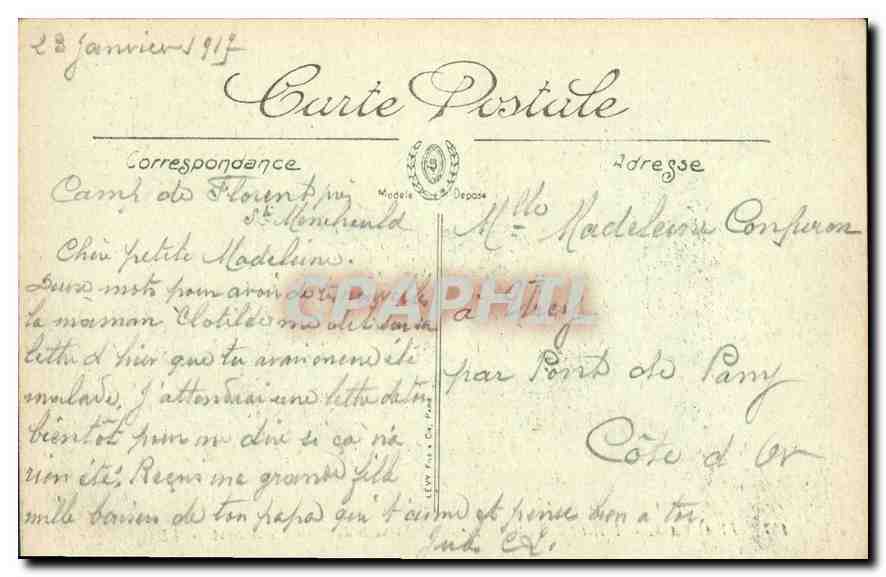 23 Janvier 1917
Carte Postale
Correspondance
Adresse
Modèle Déposé
Camp de Florent près
Ste Menehould
Chère petite Madeleine.
Deux mots pour avoir de tes nouvelles
la maman Clotilde me dit sur sa
lettre d'hier que tu avais encore été
malade. J'attendrai une lettre de toi
bientôt pour me dire si ça n'a
rien été. Reçois ma grande fille
mille baisers de ton papa qui t'aime et pense bien à toi.
Mlle Madeleine
à
par Pont de Pany
Côte d'Or
LÉVY Fils & Cie, Paris
CPAPHIL